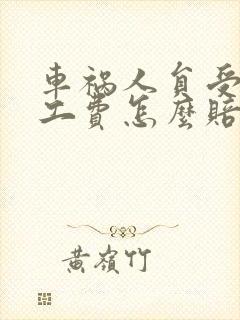 車禍人員受
工費怎麼賠
黃嶺竹